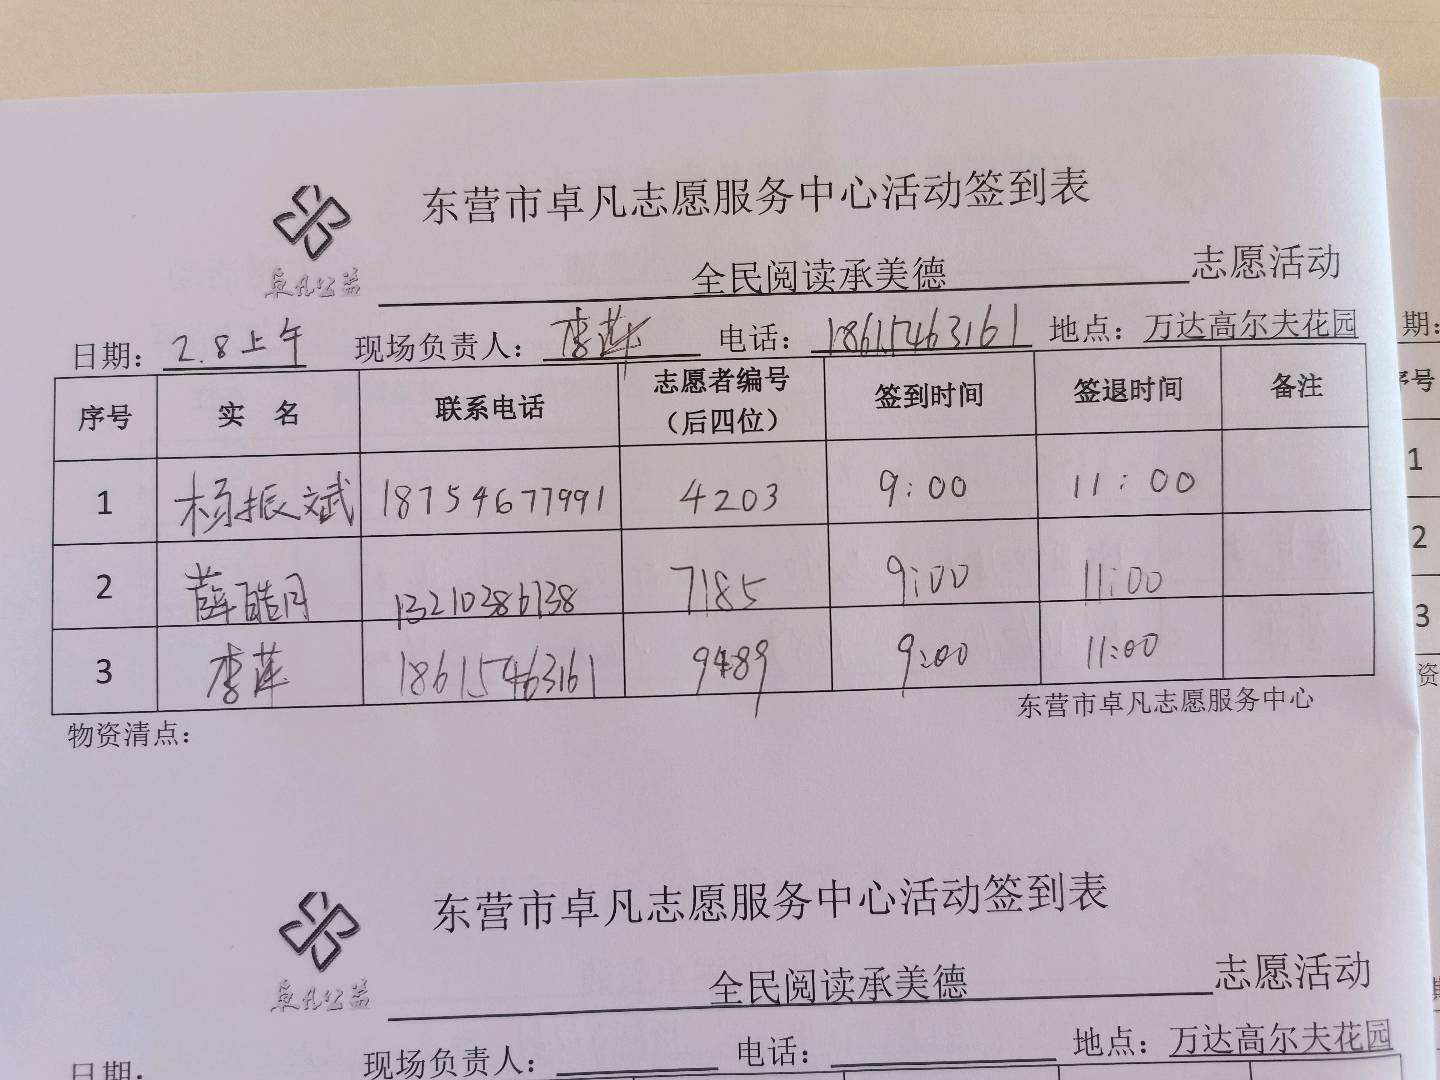 东营市卓凡志愿服务中心活动签到表
卓凡公益
全民阅读承美德 志愿活动
日期：2.8上午 现场负责人：李莲 电话：18615463161 地点：万达高尔夫花园
序号 实 名 联系电话 志愿者编号（后四位） 签到时间 签退时间 备注
1 杨振斌 18754677991 4203 9:00 11:00
2 薛皓月 13210386738 7185 9:00 11:00
3 李莲 18615463161 9489 9:00 11:00
物资清点： 东营市卓凡志愿服务中心
东营市卓凡志愿服务中心活动签到表
卓凡公益
全民阅读承美德 志愿活动
日期： 现场负责人： 电话： 地点：万达高尔夫花园
期：
序号
1
2
3
资